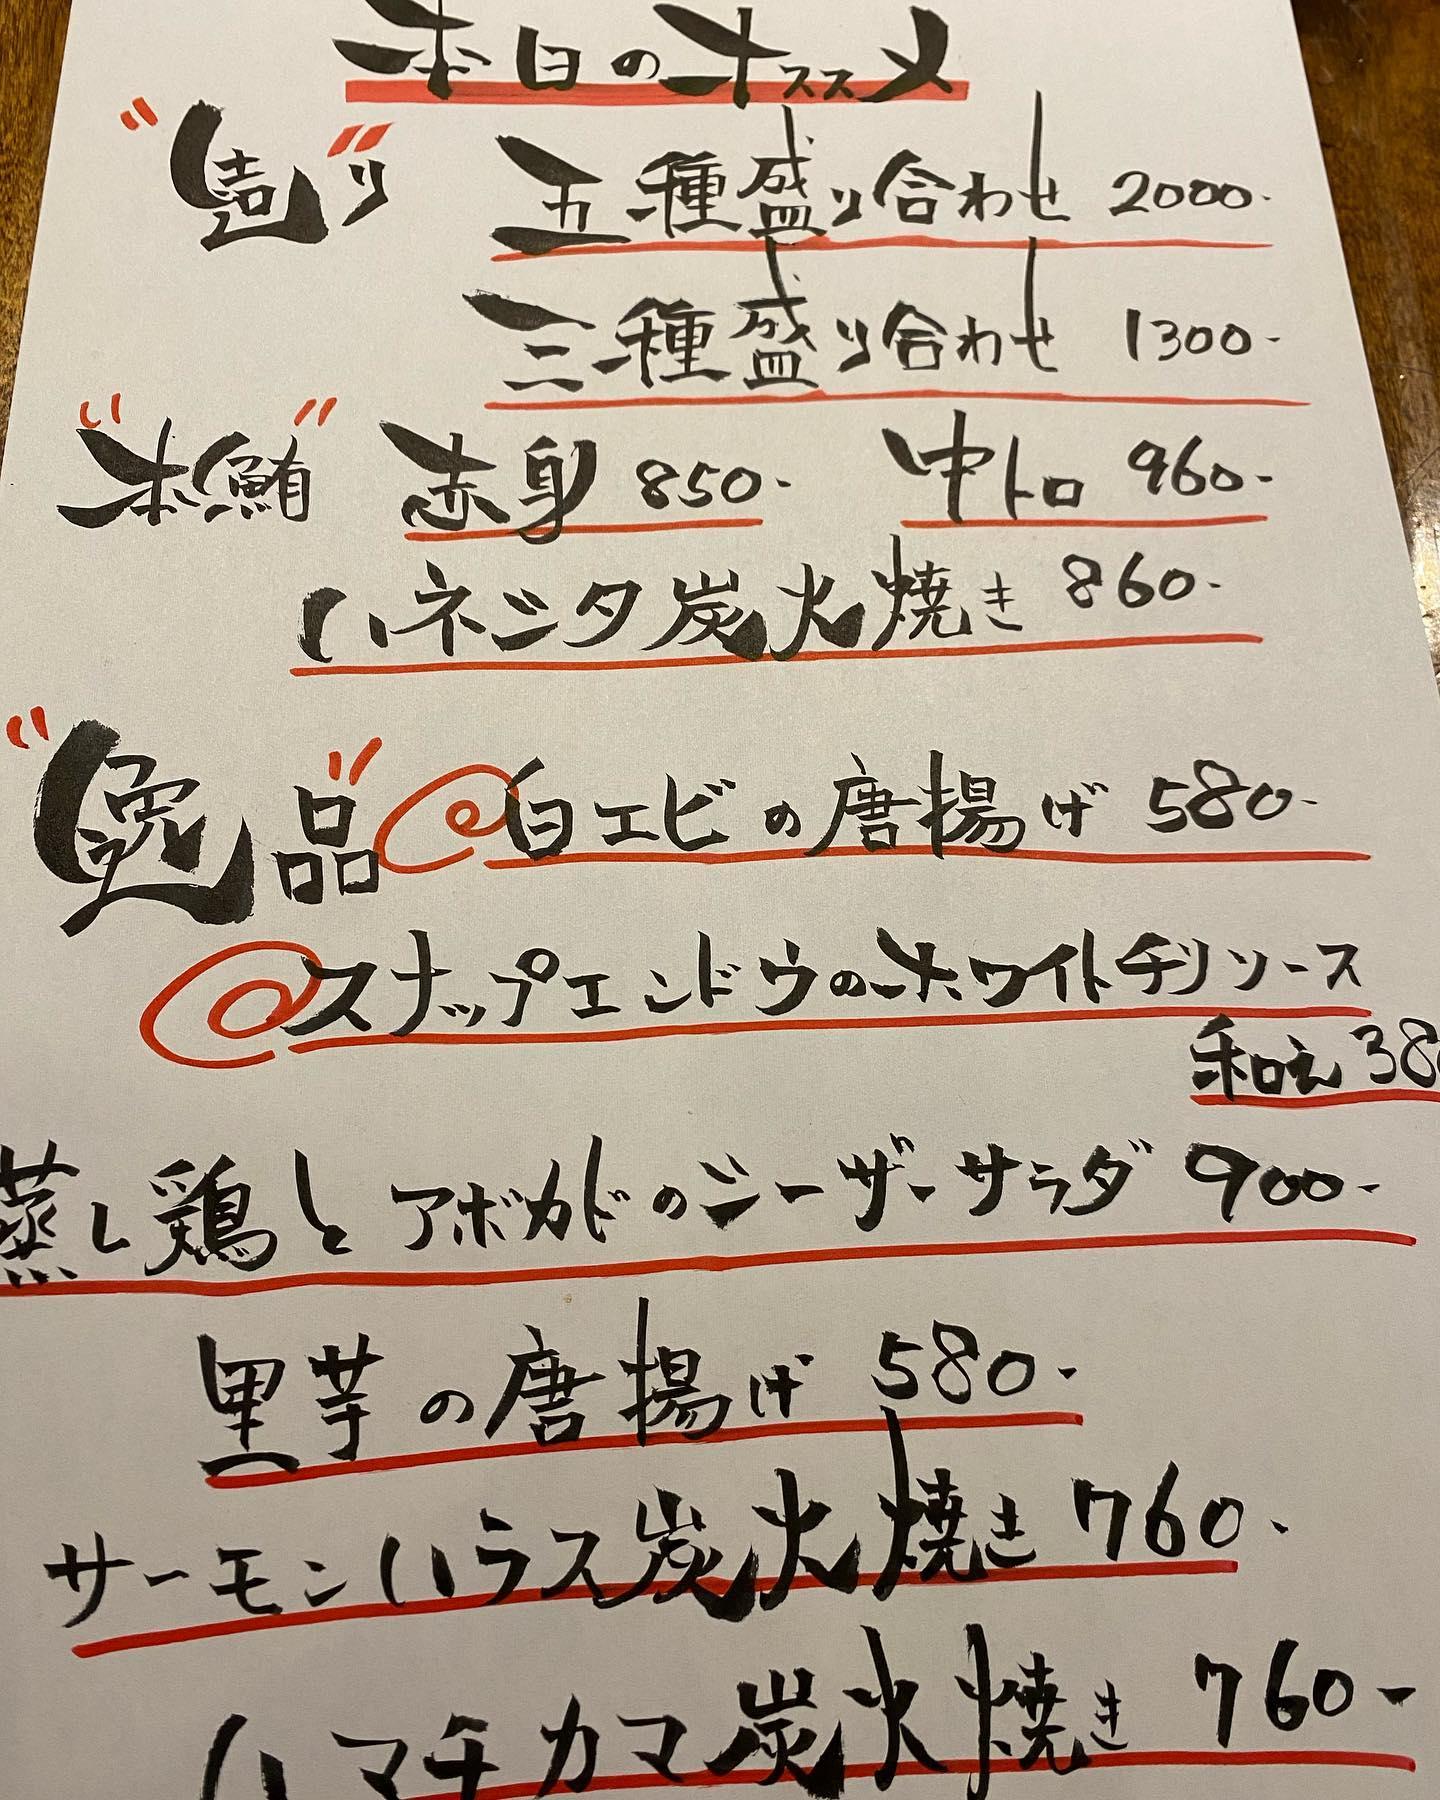 本日のオススメ
"造り" 五種盛り合わせ 2000-
三種盛り合わせ 1300-
"本鮪" 赤身 850- 中トロ 960-
ハネシタ炭火焼き 860-
"逸品" @白エビの唐揚げ 580-
@スナップエンドウのホワイトチリソース
和え 38
蒸し鶏とアボカドのシーザーサラダ 900-
里芋の唐揚げ 580-
サーモンハラス炭火焼き 760-
ハマチカマ炭火焼き 760-